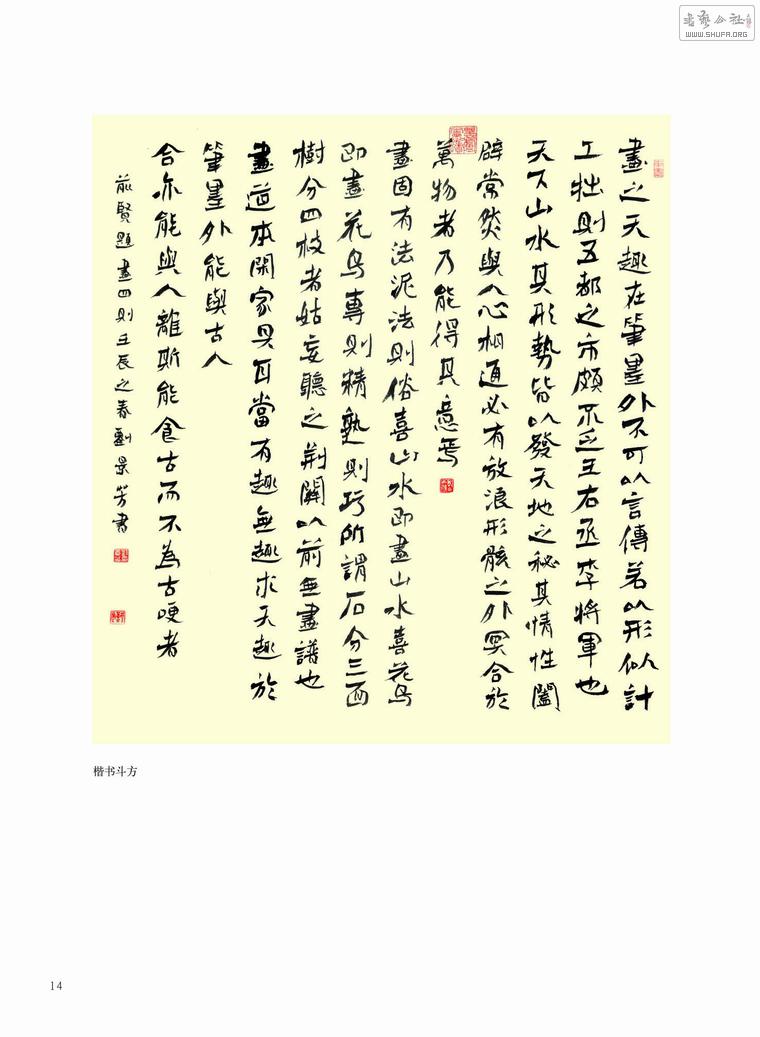 書藝公社
WWW.SHUFA.ORG
畫之天趣在筆墨外不可以言傳若以形似計
工拙則五都之市頗不乏王右丞李將軍也
天下山水其形勢皆以發天地之秘其情性闔
辟常然與人心相通必有放浪形骸之外冥合於
萬物者乃能得其意焉
畫固有法泥法則俗喜山水即畫山水喜花鸟
即畫花鸟專則精熟則巧所謂石分三面
樹分四枝者姑妄聽之荆關以前無畫譜也
畫道本閑家具耳當有趣無趣求天趣於
筆墨外能與古人
合亦能與人離斯能食古而不為古哽者
前賢題畫四則壬辰之春劉景芳書
楷书斗方
14